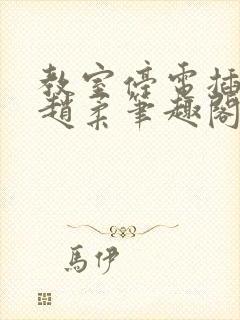 教室停電插
趙柔筆趣閣
馬伊